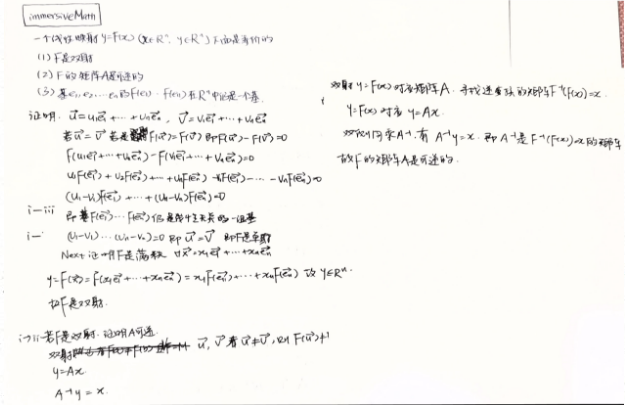 immersiveMath
一个线性映射 y=F(x) (x∈Rⁿ, y∈Rⁿ) 下面是等价的
(1) F是双射
(2) F的矩阵A是可逆的
(3) 基e₁,e₂,…eₙ的F(e₁)…F(eₙ)在Rⁿ中还是一个基.
证明. u⃗=u₁e⃗₁+…+uₙe⃗ₙ, v⃗=v₁e⃗₁+…+vₙe⃗ₙ
若u⃗=v⃗ 若是 F(u⃗)=F(v⃗) 即F(u⃗)-F(v⃗)=0
F(u₁e⃗₁+…+uₙe⃗ₙ)-F(v₁e⃗₁+…+vₙe⃗ₙ)=0
u₁F(e⃗₁)+u₂F(e⃗₂)+…+uₙF(e⃗ₙ)-v₁F(e⃗₁)-…-vₙF(e⃗ₙ)=0
(u₁-v₁)F(e⃗₁)+…+(uₙ-vₙ)F(e⃗ₙ)=0
i→iii 即基F(e⃗₁)…F(e⃗ₙ)仍是线性无关的一组基
i→ (u₁-v₁)…(uₙ-vₙ)=0 即 u⃗=v⃗ 即F是单射
Next 证明F是满射. ∀x⃗=x₁e⃗₁+…+xₙe⃗ₙ
y=F(x⃗)=F(x₁e⃗₁+…+xₙe⃗ₙ)=x₁F(e⃗₁)+…+xₙF(e⃗ₙ) 故 y∈Rⁿ.
故F是双射.
i→ii 若F是双射. 证明A可逆
双射 u⃗, v⃗ 若u⃗≠v⃗, 则 F(u⃗)≠
y=Ax
A⁻¹y=x.
双射 y=F(x) 对应矩阵A. 寻找逆变换的矩阵F⁻¹(F(x))=x.
y=F(x) 对应 y=Ax.
A⁻¹. 有 A⁻¹y=x. 即 A⁻¹是 F⁻¹(F(x))=x的矩阵
故F的矩阵A是可逆的.